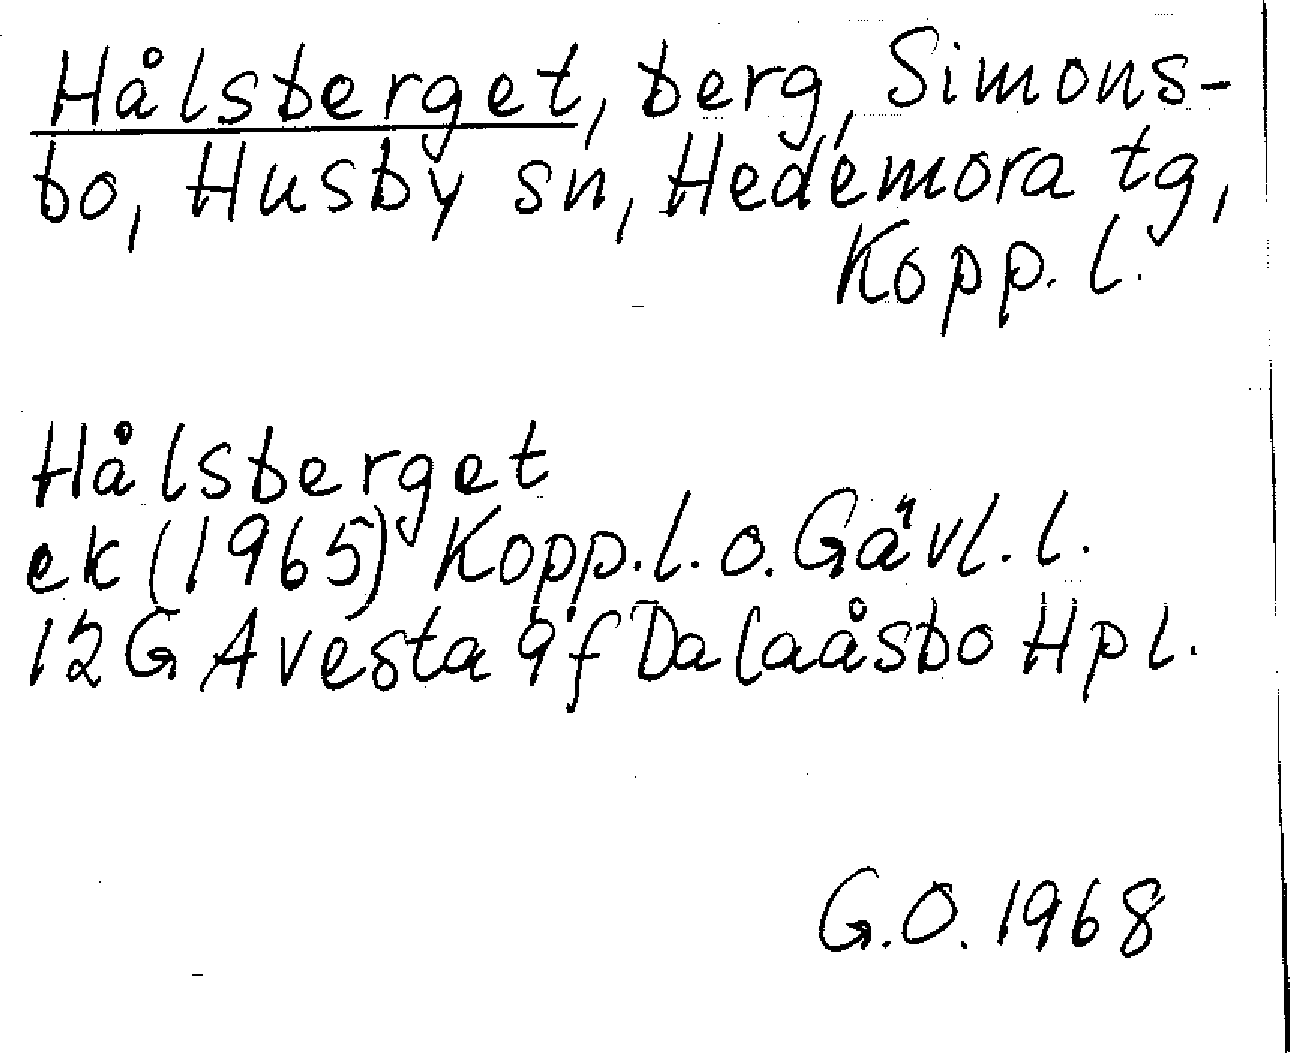 Hålsberget, berg, Simons-
bo, Husby sn, Hedemora tg,
Kopp. l.
Hålsberget
ek (1965) Kopp. l. o. Gävl. l.
12G Avesta 9f Dalaåsbo Hpl.
G.O. 1968